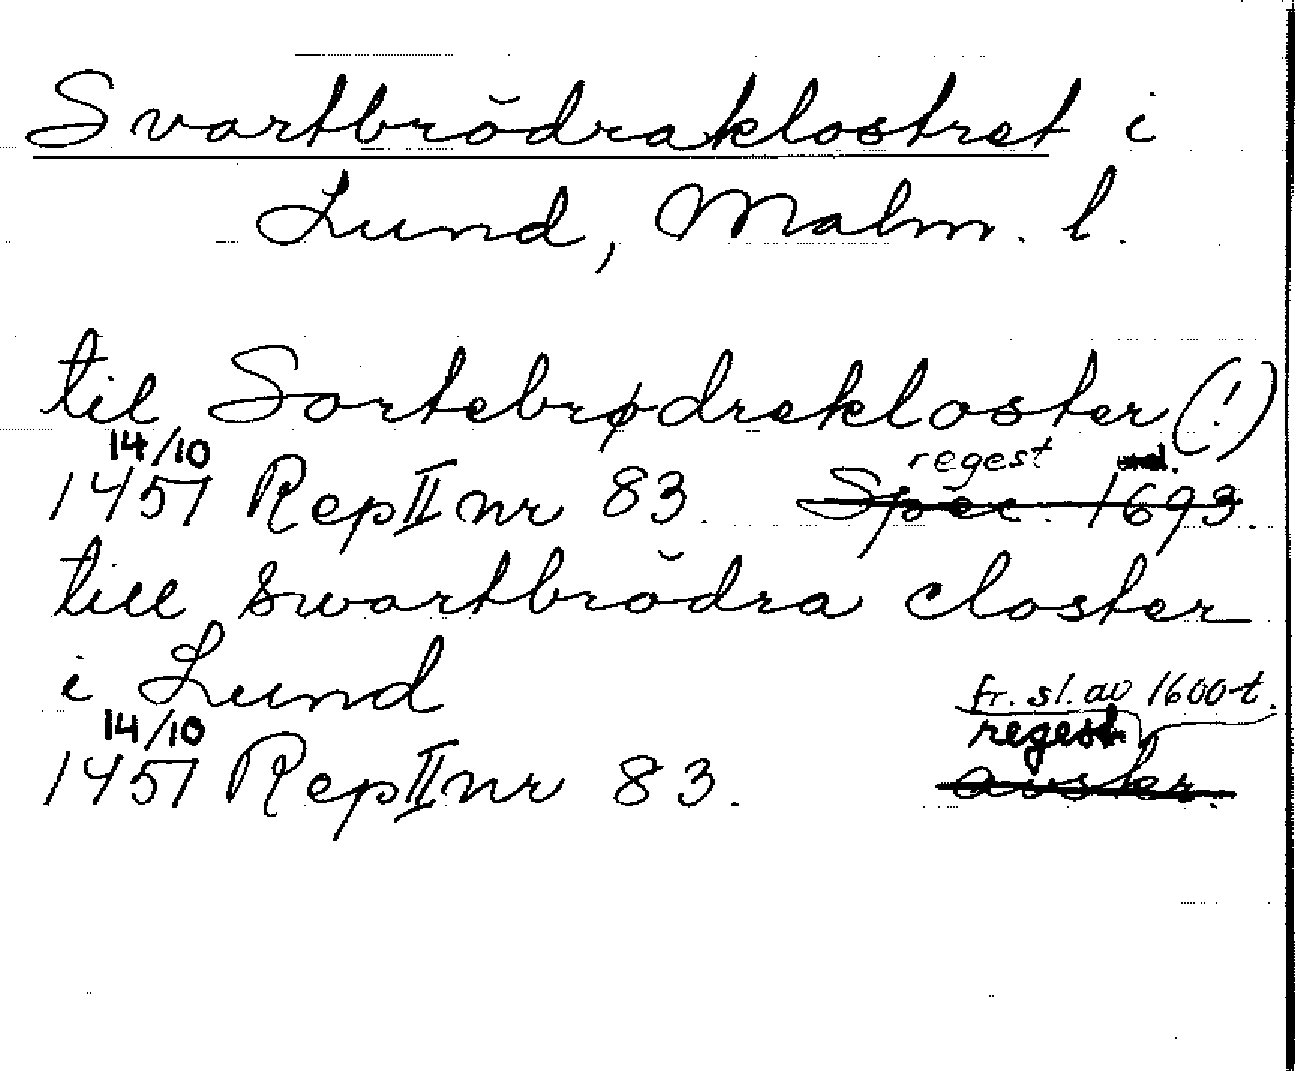 Svartbrödraklostret i
Lund, Malm. l.
til Sortebrødrekloster (!)
14/10 regest
1457 Rep II nr 83. Spec. 1693.
till swartbrödra closter
i Lund
fr. sl. av 1600-t.
14/10 regest
1457 Rep II nr 83. avskr.